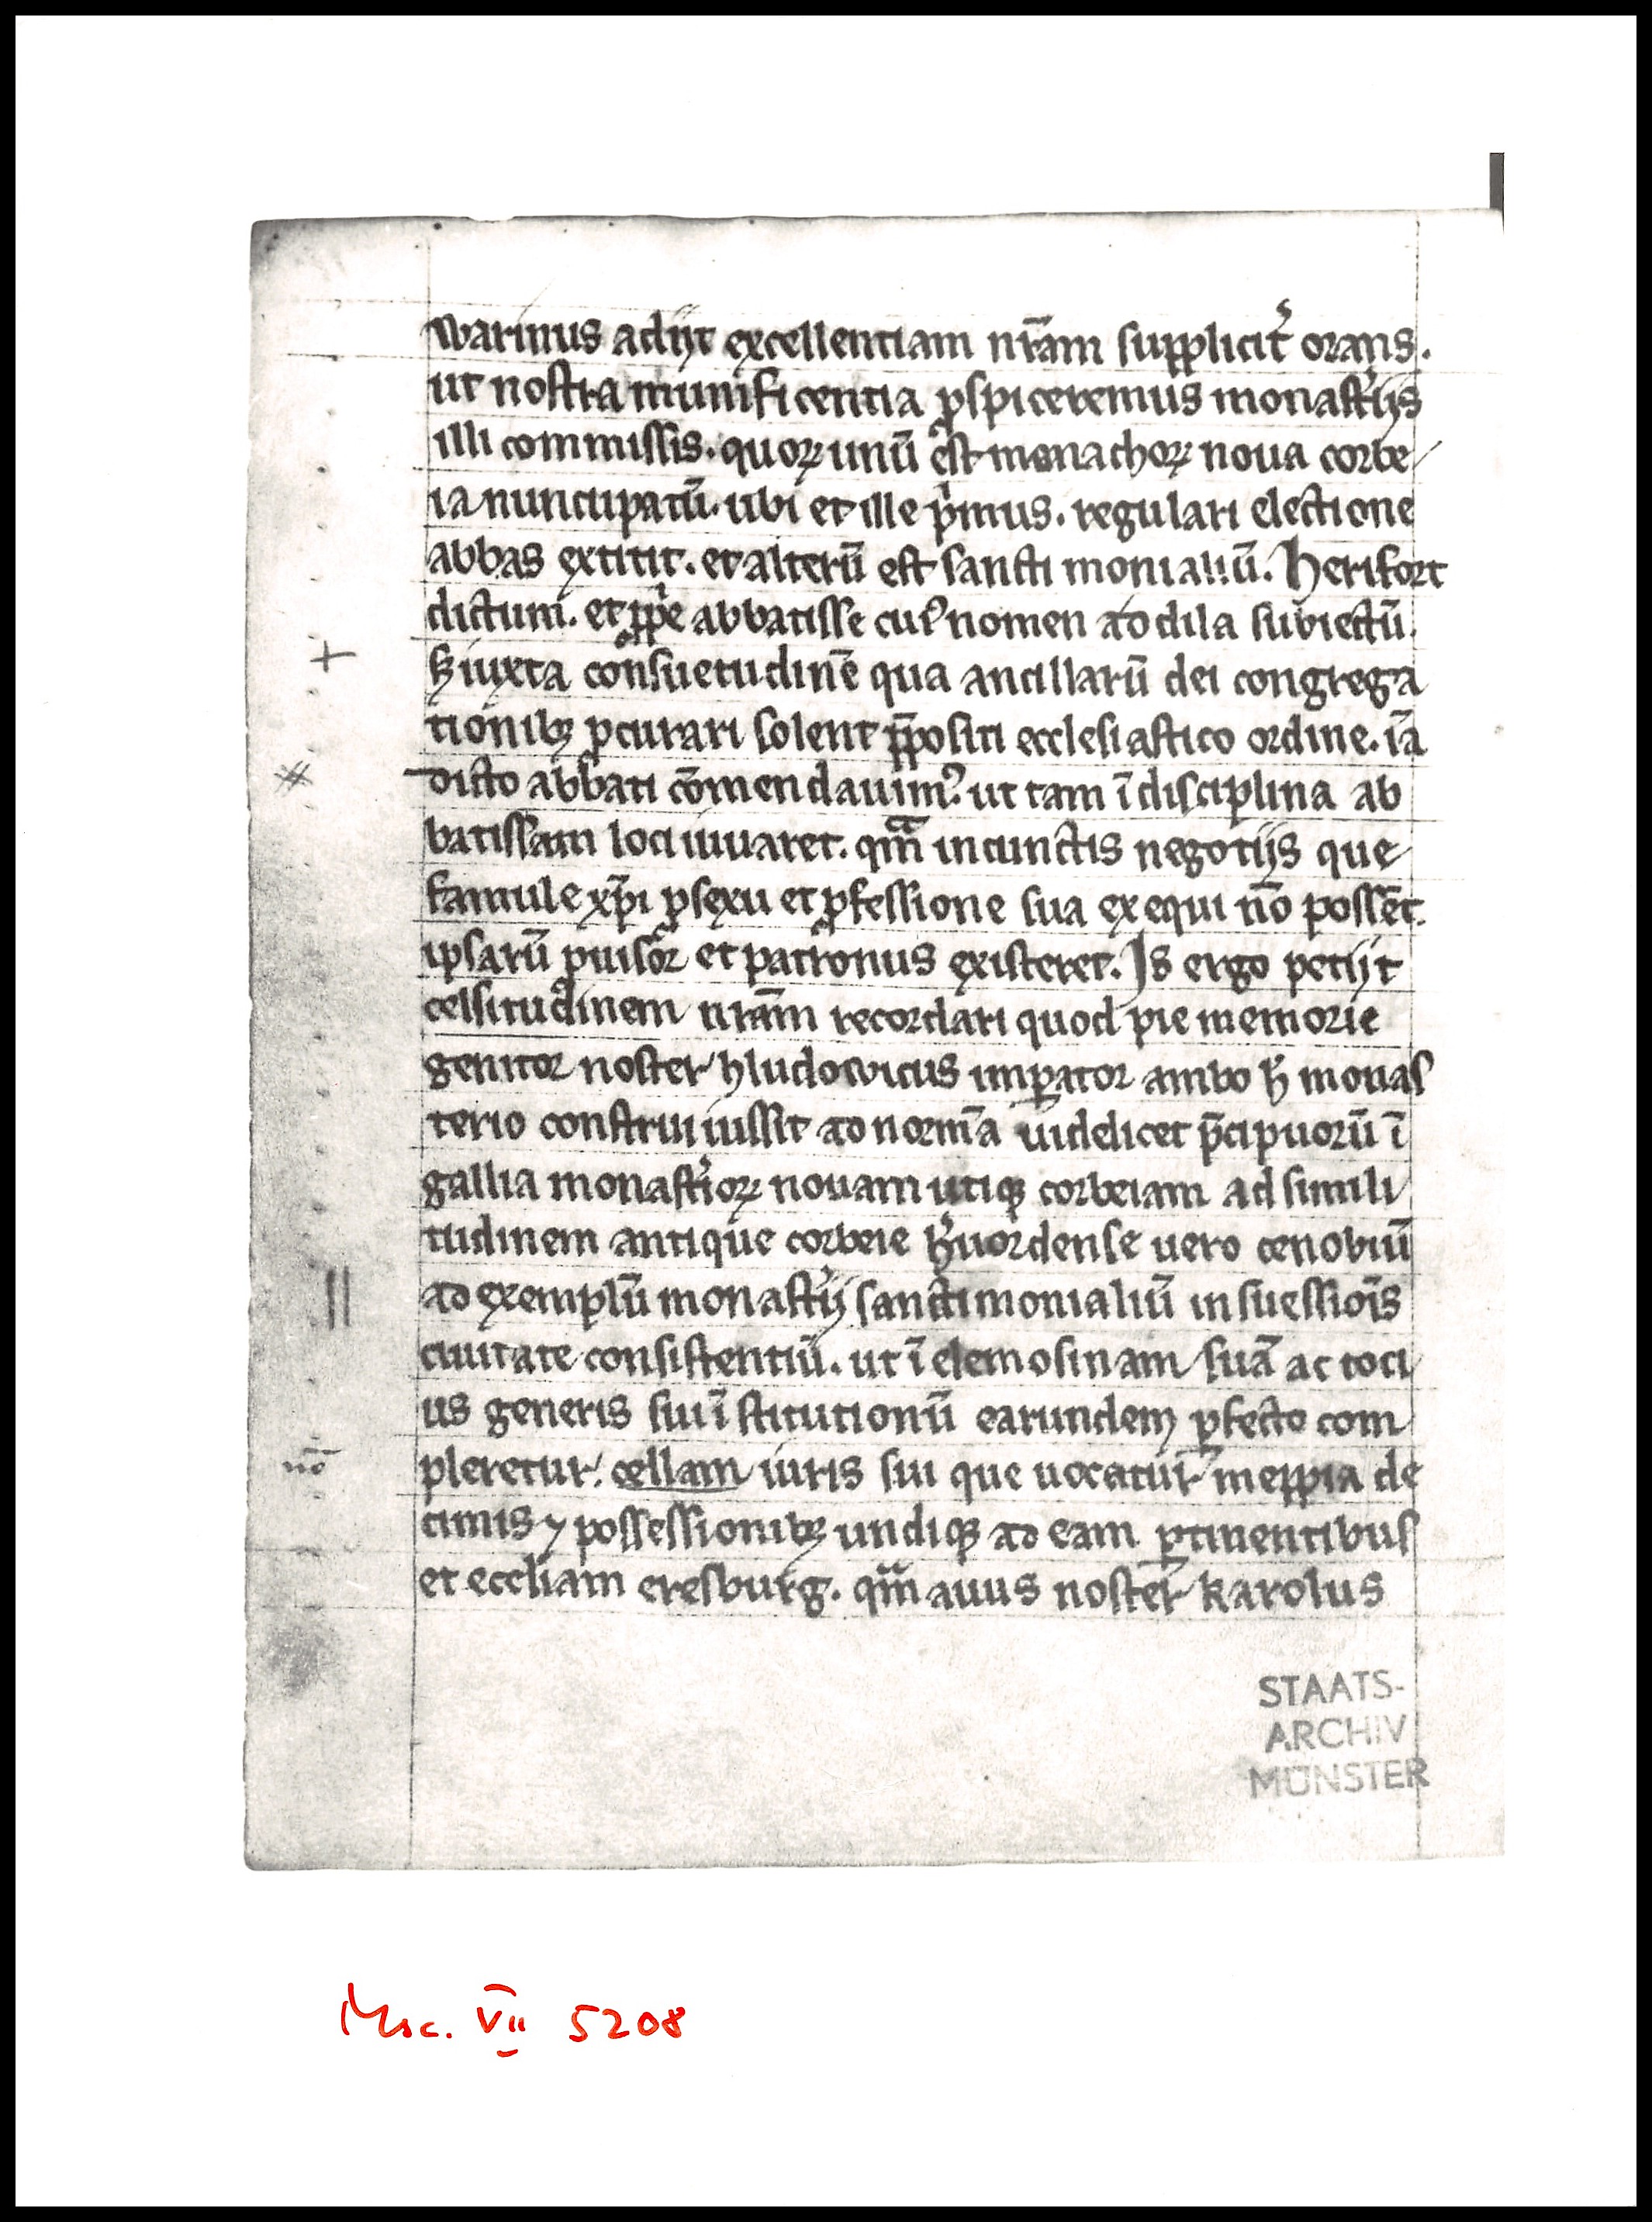 warinus adijt excellentiam nr̄am supplicit͛ orans.
ut nostra munificentia ꝓspiceremus monast͛ijs
illi commissis. quoꝝ unū est monachoꝝ noua corbe
ia nuncupatū. ubi et ille pͥmus. regulari electione
abbas extitit. et alterū est sancti monialiū. herifort
dictum. et ꝓpͥe abbatisse cuiꝰ nomen addila subiectū.
iuxta consuetudinē qua ancillarū dei congrega
tionibꝫ ꝓcurari solent p̄positi ecclesiastico ordine. iā
dicto abbati cōmendauimꝰ. ut tam ī disciplina ab
batissam loci iuuaret. qm̄ in cunctis negotijs que
famule xp̄i ꝓ sexu et ꝓfessione sua exequi nō possēt.
ipsarū ꝓuisor et patronus existeret. Is ergo petijt
celsitudinem nr̄am recordari quod pie memorie
genitor noster hludowicus imꝑator ambo h̄ monas
terio construi iussit ad normā uidelicet p̄cipuorū ī
gallia monast͛ioꝝ nouam utiqꝫ corbeiam ad simili
tudinem antique corbeie h͛uordense uero cenobiū
ad exemplū monast͛ij sanctimonialiū in suessiōis
ciuitate consistentiū. ut ī elemosinam suā ac toci
us generis sui īstitutionū earundem ꝑfecto com
pleretur. cellam iuris sui que uocatur meppia de
cimis ⁊ possessionibꝫ undiqꝫ ad eam ꝑtinentibus
et eccliam eresburg. qm̄ auus noster karolus
nō
STAATS-
ARCHIV
MÜNSTER
Msc. VII 5208